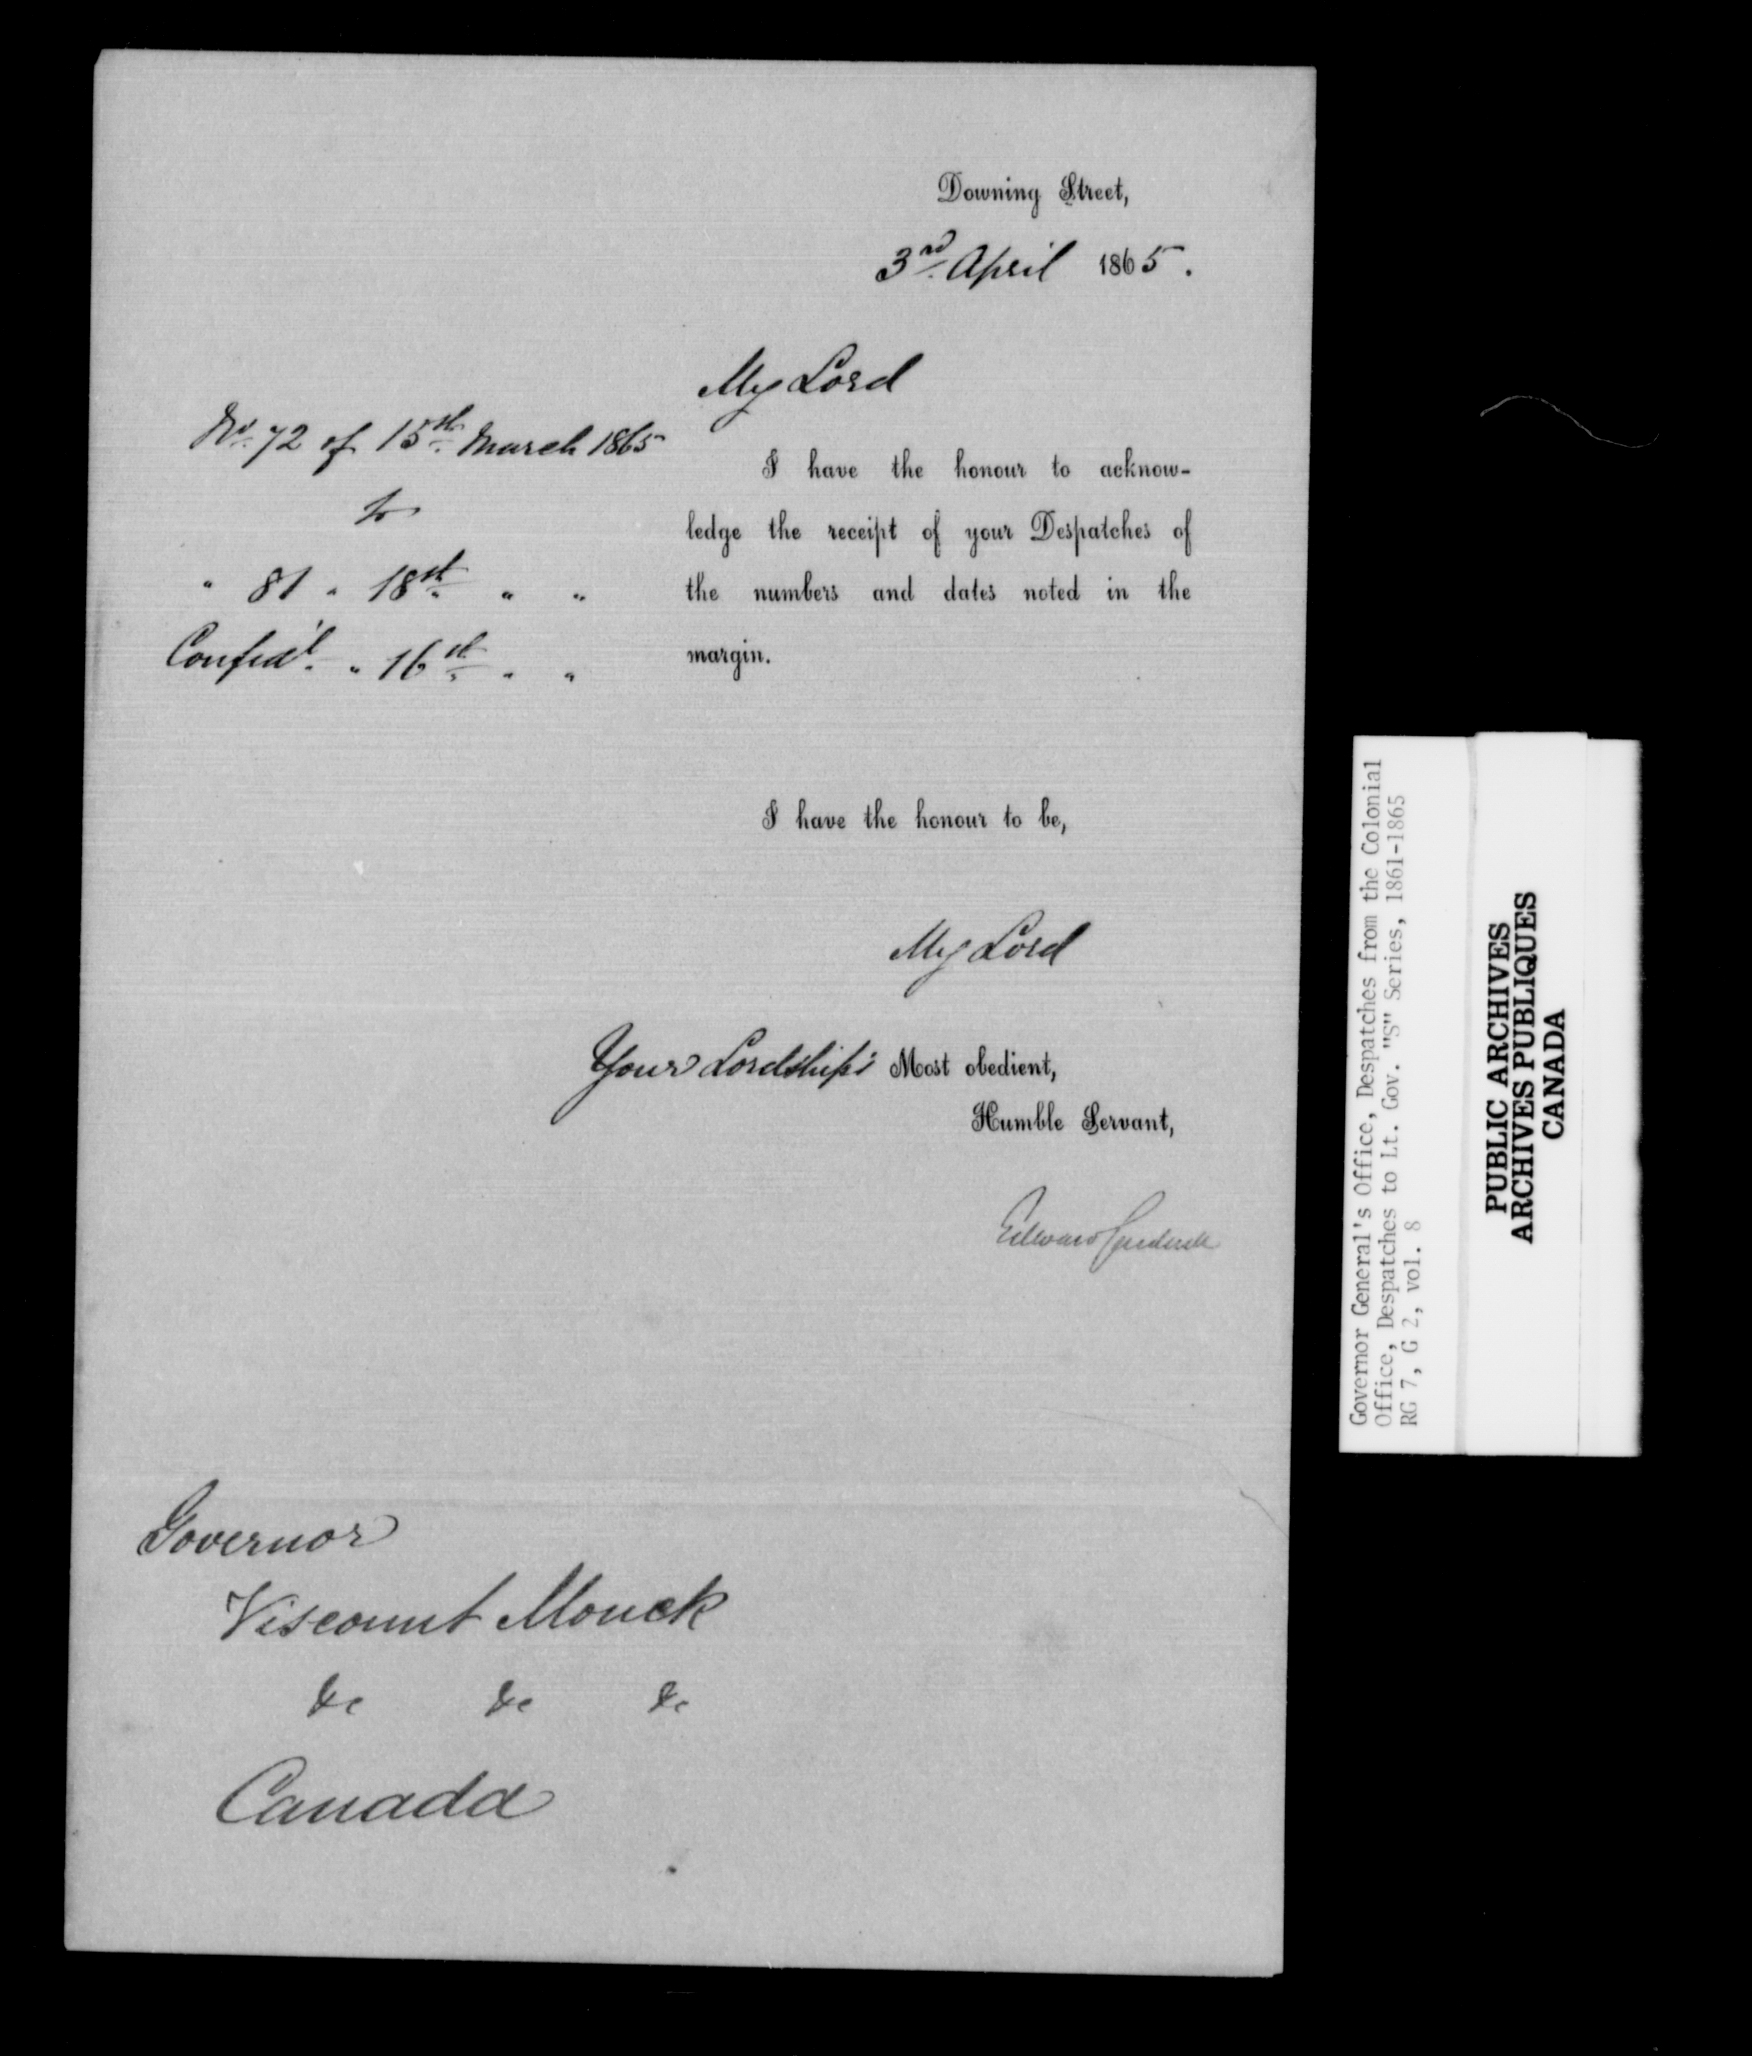 Downing Street,
3rd. April 1865.
My Lord
No. 72 of 15th. March 1865
to
" 81 " 18th. " "
Confidl. " 16th. " "
I have the honour to acknow-
ledge the receipt of your Despatches of
the numbers and dates noted in the
margin.
I have the honour to be,
My Lord
Your Lordship's Most obedient,
Humble Servant,
Edward
Governor
Viscount Monck
&c &c &c
Canada
Governor General's Office, Despatches from the Colonial
Office, Despatches to Lt. Gov. "S" Series, 1861-1865
RG 7, G 2, vol. 8
PUBLIC ARCHIVES
ARCHIVES PUBLIQUES
CANADA